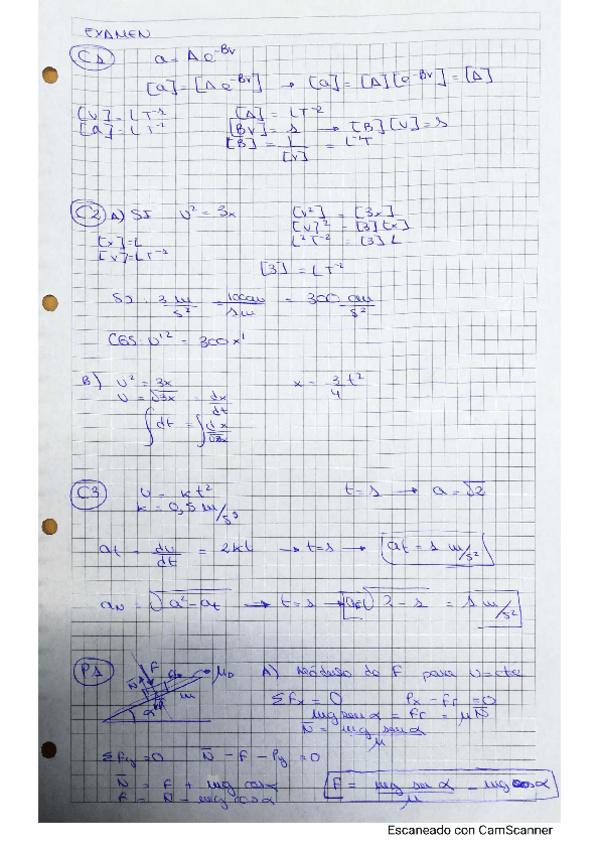 EXAMEN
C1 a = A e^-Bv
[a] = [A e^-Bv] → [a] = [A] [e^-Bv] = [A]
[v] = L T^-1 [A] = L T^-2
[a] = L T^-2 [Bv] = 1 → [B] [v] = 1
[B] = 1/[v] = L^-1 T
C2 A) SI v² = 3x [v²] = [3x]
[x] = L [v]² = [3] [x]
[v] = L T^-1 L² T^-2 = [3] L
[3] = L T^-2
SI · 3 m/s² = 100cm/1m = 300 cm/s²
CGS v'² = 300x'
B) v² = 3x x = 3/4 t²
v = √3x = dx/dt
∫ dt = ∫ dx/√3x
C3 v = kt² t = 1 → a = √2
k = 0,5 m/s³
at = dv/dt = 2kt → t=1 → at = 1 m/s²
aN = √a² - at → t=1 → √2 - 1 = 1 m/s²
P1 N F m α A) Módulo de F para v = cte
ΣFx = 0 Px - Fr = 0
mg sen α = Fr = μN
N = mg sen α / μ
ΣFy = 0 N - F - Py = 0
N = F + mg cos α
F = N - mg cos α F = mg sen α / μ - mg cos α
Escaneado con CamScanner